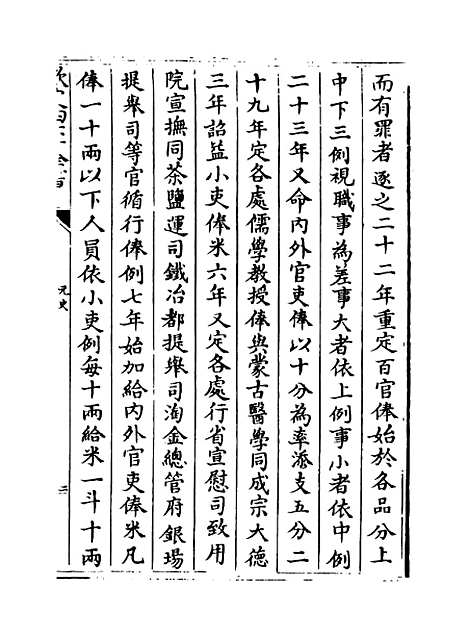 而有罪者逐之二十二年重定百官俸始於各品分上
中下三例視職事為差事大者依上例事小者依中例
二十三年又命內外官吏俸以十分為率添支五分二
十九年定各處儒學教授俸與蒙古醫學同成宗大德
三年詔益小吏俸米六年又定各處行省宣慰司致用
院宣撫同茶鹽運司鐵冶都提舉司淘金總管府銀場
提舉司等官循行俸例七年始加給內外官吏俸米凡
俸一十兩以下人員依小吏例每十兩給米一斗十兩
元史
三